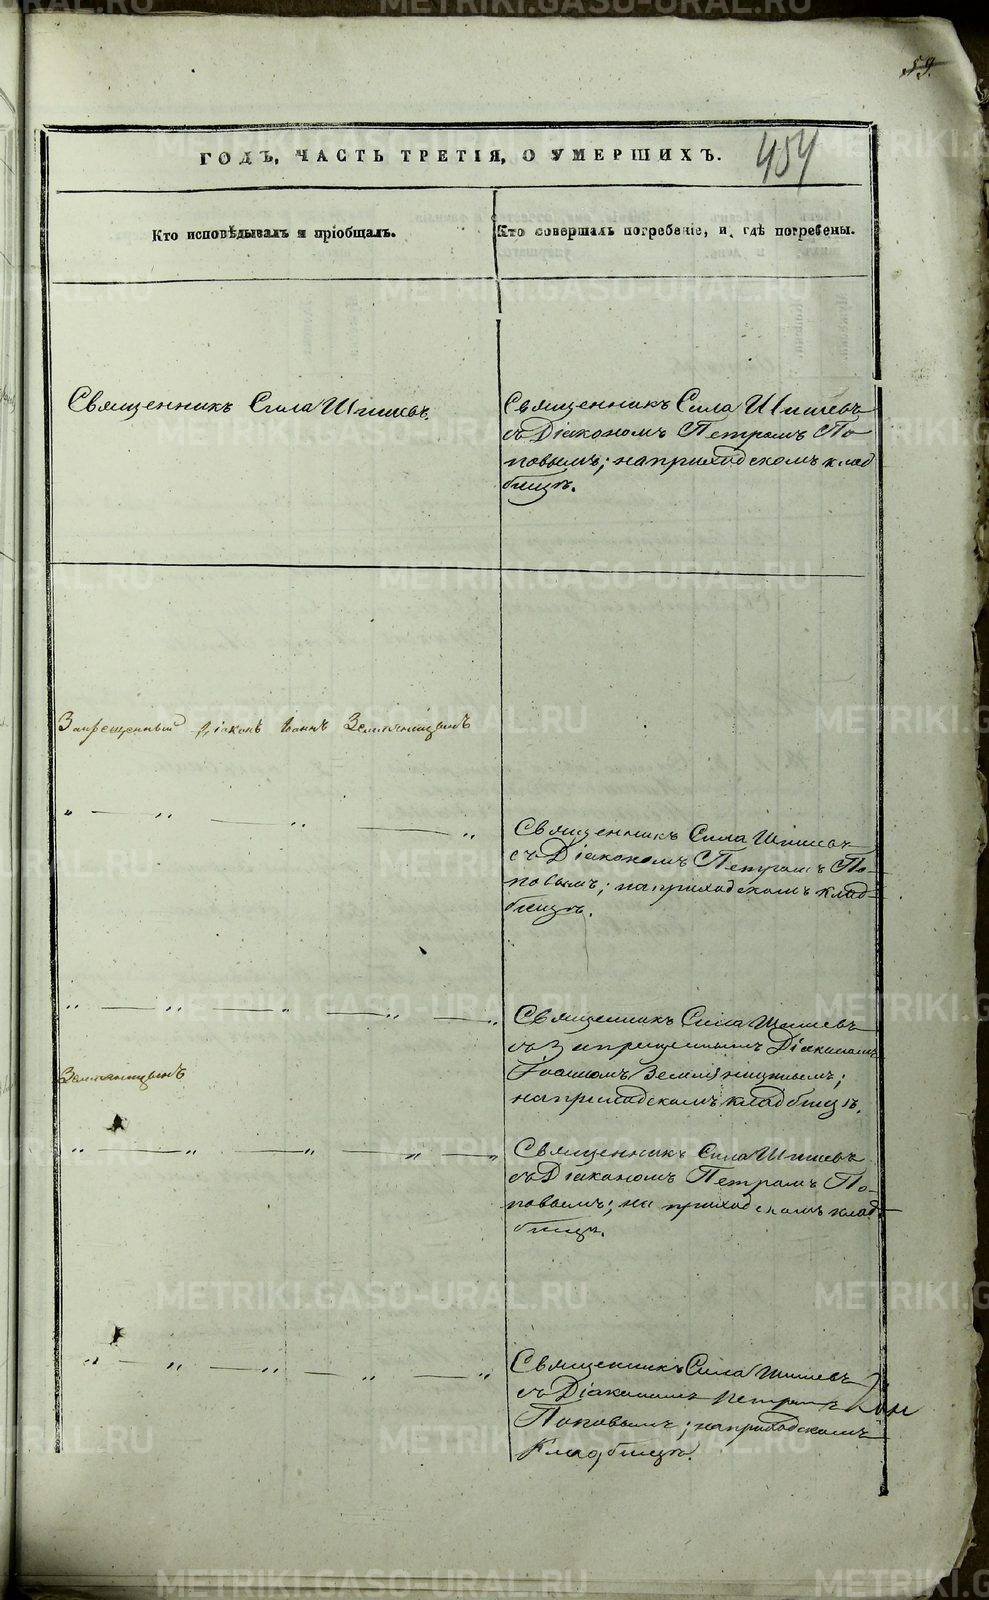 59.
ГОДЪ, ЧАСТЬ ТРЕТІЯ, О УМЕРШИХЪ.
454
Кто исповѣдывалъ и пріобщалъ.
Кто совершалъ погребеніе, и гдѣ погребены.
Священникъ Сила Шишевъ
Священникъ Сила Шишевъ
съ Діакономъ Петромъ По
повымъ; на приходскомъ клад
бищѣ.
Запрещенный Діаконъ Іоаннъ Земляницынъ
„ — „ — „ — „
Священникъ Сила Шишевъ
съ Діакономъ Петромъ По-
повымъ; на приходскомъ клад-
бищѣ.
„ — „ — „ — „ — „
Священникъ Сила Шишевъ
съ Запрещеннымъ Діакономъ
Земляницынъ
Іоанномъ Земляницынымъ;
на приходскомъ кладбищѣ.
„ — „ — „ — „ — „
Священникъ Сила Шишевъ
съ Діакономъ Петромъ По-
повымъ; на приходскомъ клад-
бищѣ.
„ — „ — „ — „ — „
Священникъ Сила Шишевъ
съ Діакономъ Петромъ
Поповымъ; на приходскомъ
Кладбищѣ.
METRIKI.GASO-URAL.RU